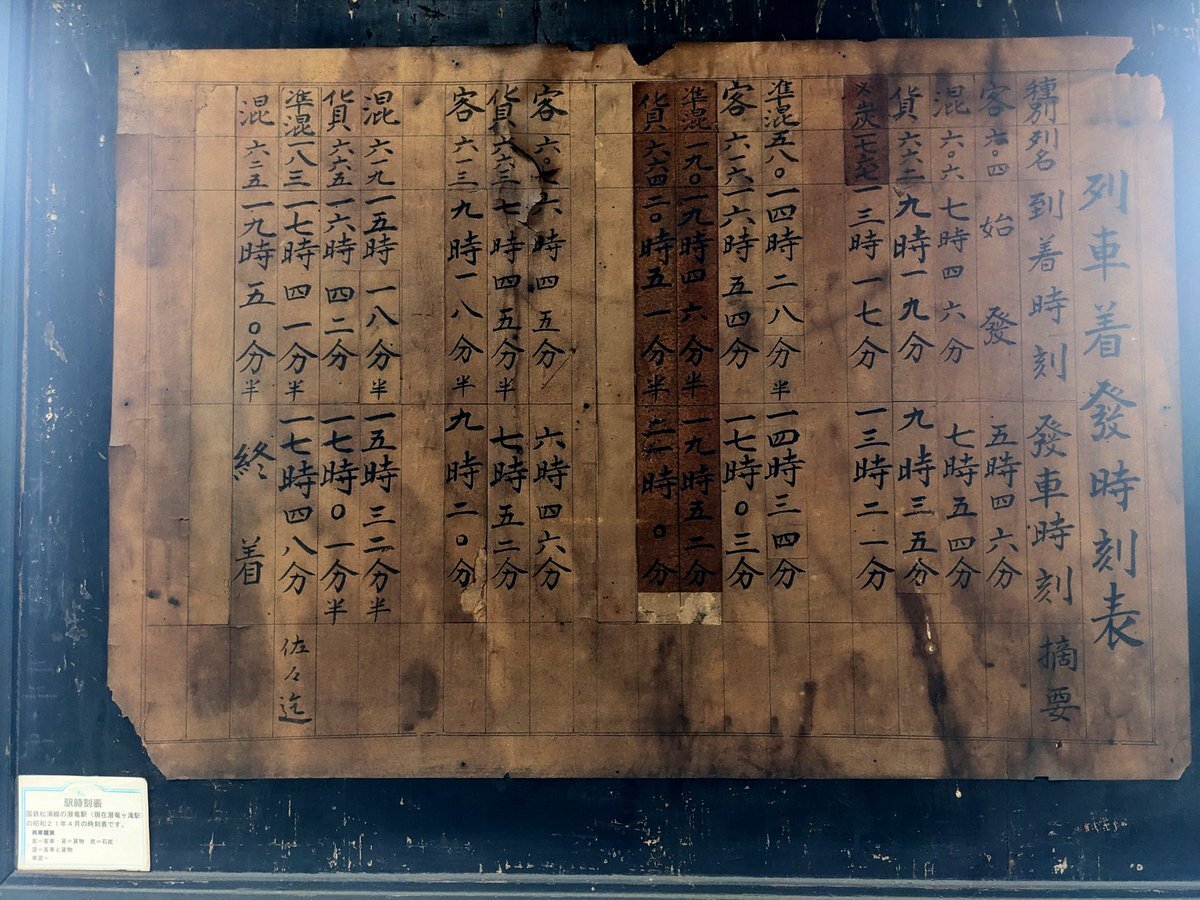 列車着發時刻表
種別 列名 到着時刻 發車時刻 摘要
客 六〇四 始發 五時四六分
混 六〇六 七時四六分 七時五四分
貨 六六二 九時一九分 九時三五分
※炭 一七七 一三時一七分 一三時二一分
準混 五八〇 一四時二八分半 一四時三四分
客 六一六 一六時五四分 一七時〇三分
準混 一九〇 一九時四六分半 一九時五二分
貨 六六四 二〇時五一分半 二一時〇分
客 六〇 六時四五分 六時四六分
貨 六六三 七時四五分半 七時五二分
客 六一三 九時一八分半 九時二〇分
混 六一九 一五時一八分半 一五時三二分半
貨 六六五 一六時四二分 一七時〇一分半
準混 一八三 一七時四一分半 一七時四八分 佐々迄
混 六二五 一九時五〇分半 終着
駅時刻表
国鉄松浦線の潜竜駅（現在潜竜ヶ滝駅）
の昭和21年4月の時刻表です。
列車種別
客＝客車 貨＝貨物 炭＝石炭
混＝客車と貨物
準混＝